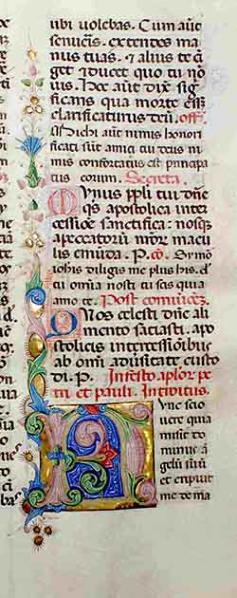 ubi uolebas. Cum aute
senueris. extendes ma
nus tuas. et alius te ci
get et ducet quo tu no
uis. Hoc aut dix sig
ficans qua morte eet
clarificaturus
Michi aut nimis honori
ficati sut amici tui deus ni
mis confortatus est principa
tus eorum. Secreta.
Munus ppli tui dne
qs apostolica inter
cessioe sanctifica: nosqz
a peccatorum macu
lis emuda. P. co. Symo
iohis diligis me plus his. d
tu omia nosti tu scis quia
amo te. Post comuioez.
Quos celesti dne ali
mento saciasti. apo
stolicis intercessioibus
ab omi aduersitate custo
di. P. In festo aplor pe
tri et pauli. Introitus.
Nunc scio
uere quia
misit do
minus a
gelu suu
et eripuit
me de ma